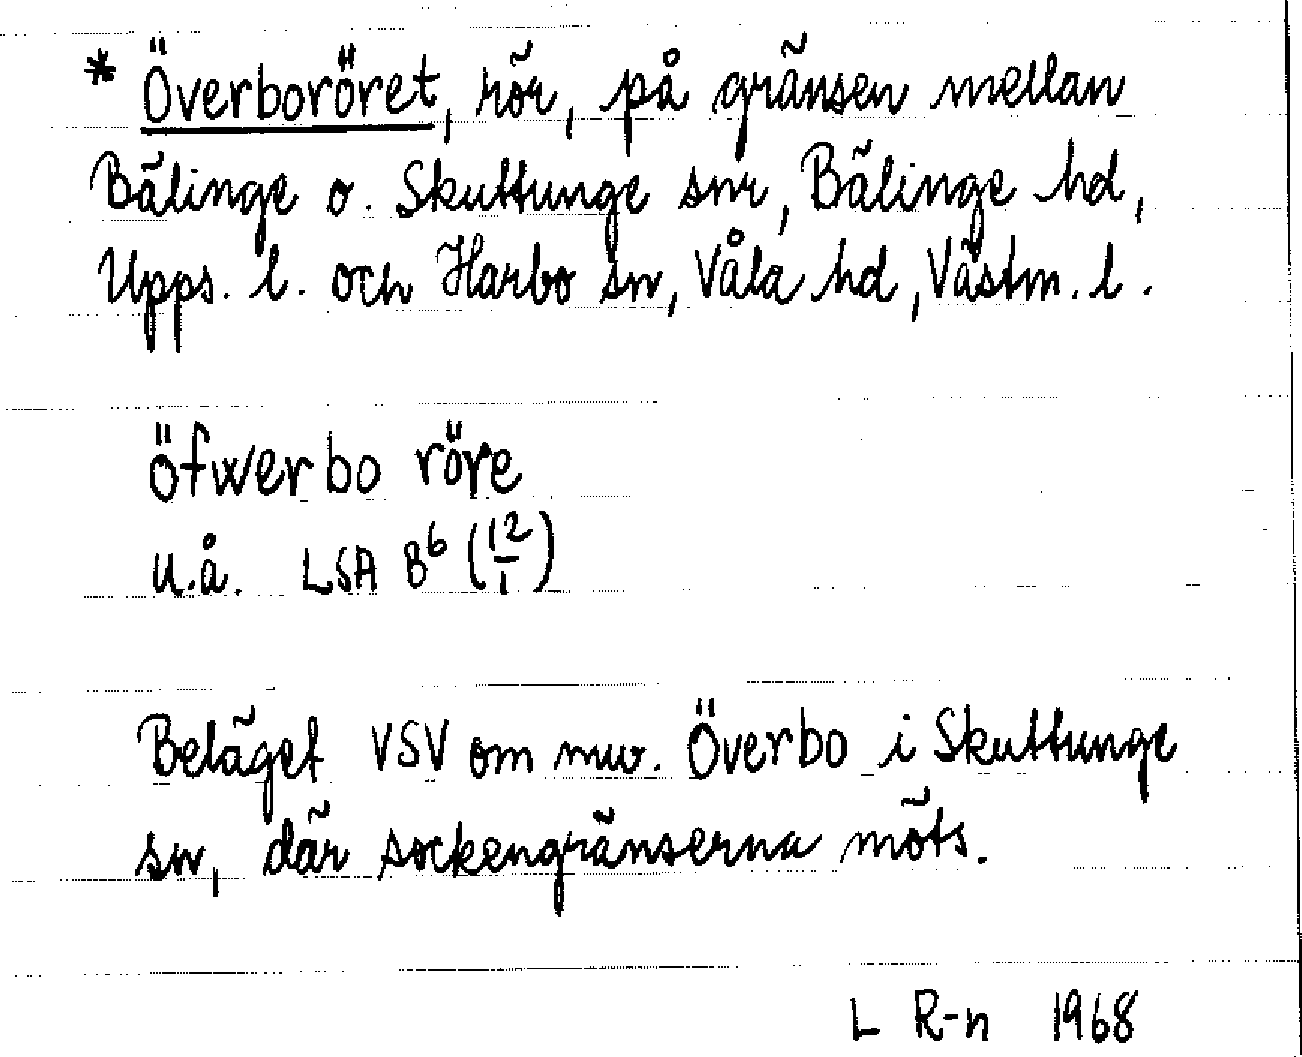 * Överboröret, rör, på gränsen mellan
Bälinge o. Skuttunge snr, Bälinge hd,
Upps. l. och Harbo sn, Våla hd, Västm. l.
öfwerbo röre
u.å. LSA B⁶ (12/1)
Beläget VSV om nuv. Överbo i Skuttunge
sn, där sockengränserna möts.
L R-n 1968